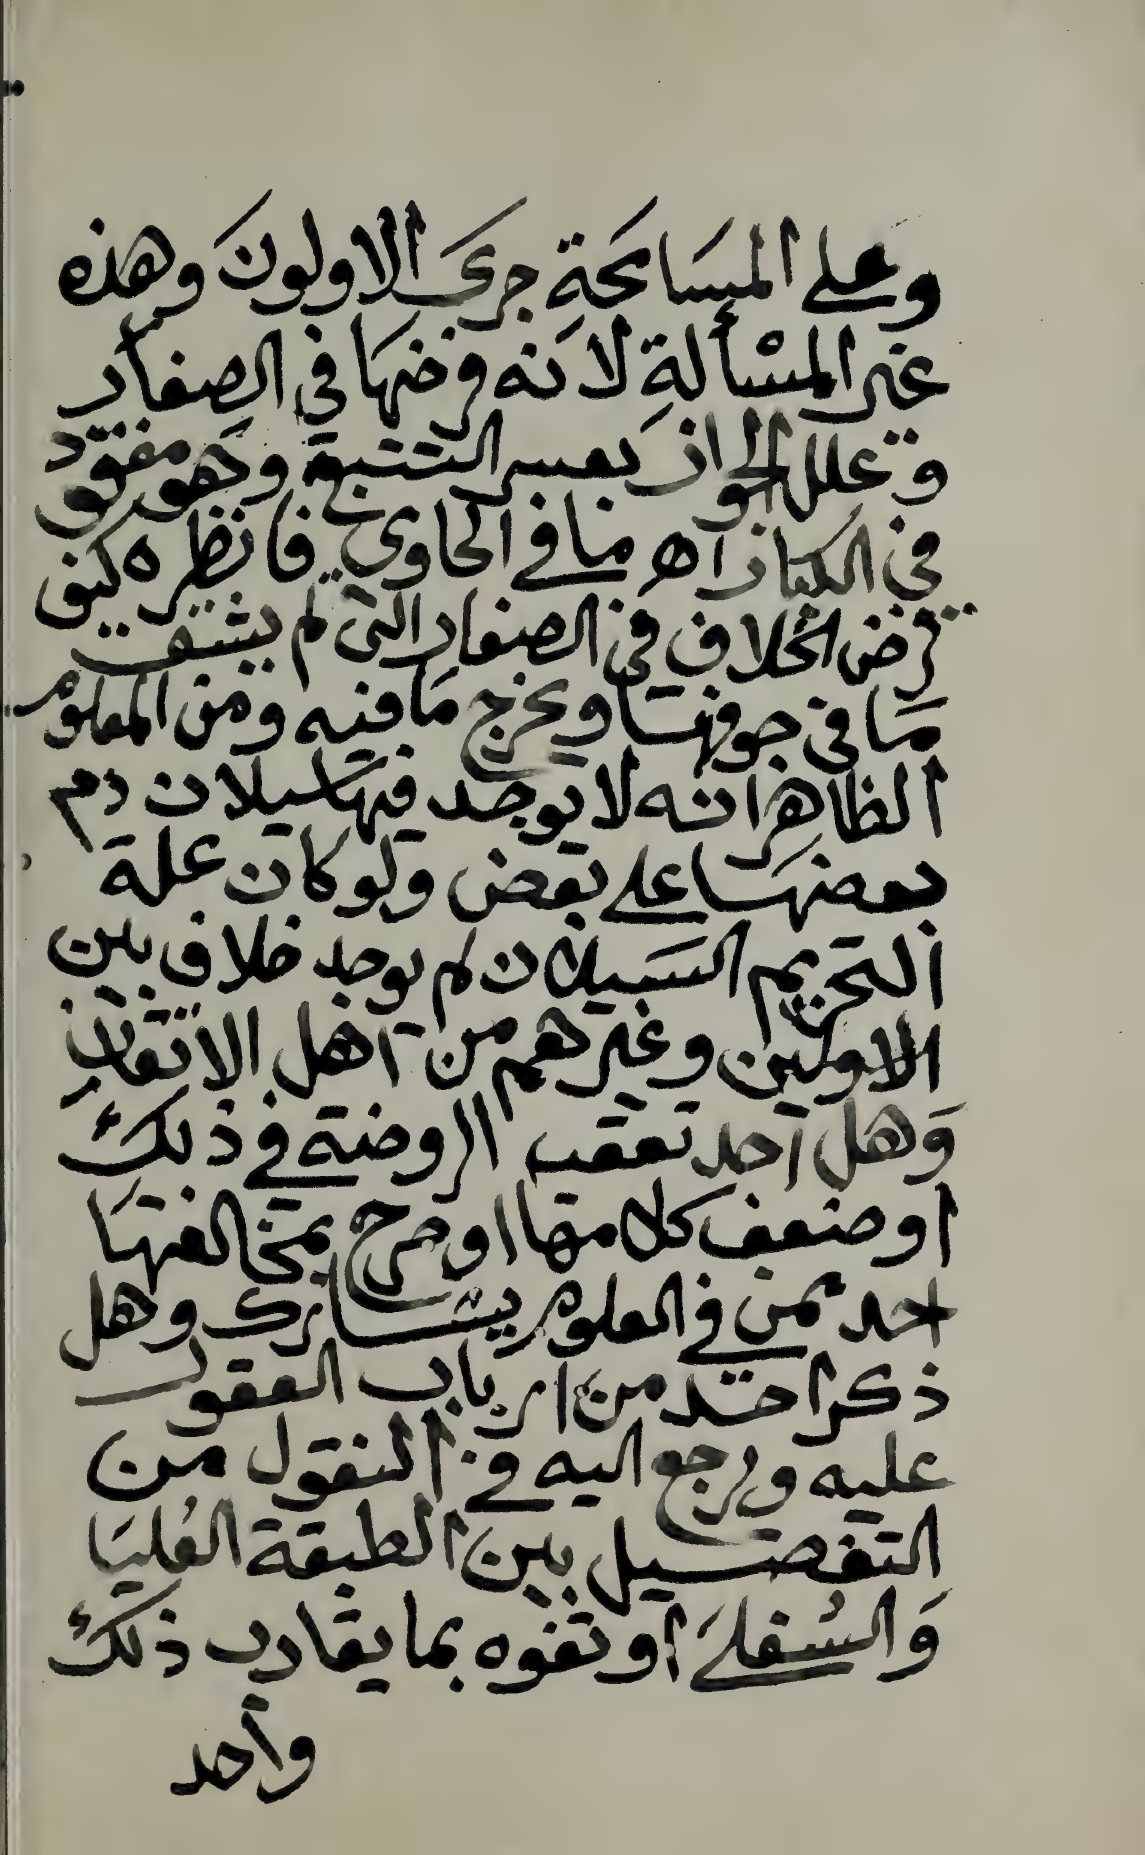 وعلى المسامحة جرى الاولون وهذه
غير المسألة لانه فرضها في الصغار
وعلل الجواز بعسر التتبع وهو مفقود
في الكبار اه ما في الحاوي فانظره كيف
فرض الخلاف في الصغار التى لم يشق
ما في جوفها ويخرج ما فيه ومن المعلوم
الظاهر انه لا يوجد فيها سيلان دم
بعضها على بعض ولو كان علة
التحريم السيلان لم يوجد خلاف بين
الاولين وغيرهم من اهل الاتقان
وهل احد تعقب الروضة في ذلك
او ضعف كلامها او صرح بمخالفتها
احد ممن في العلوم يشارك وهل
ذكر احد من ارباب العقول
عليه ورجع اليه في النقول من
التفصيل بين الطبقة العليا
والسفلى او تفوه بما يقارب ذلك
واحد